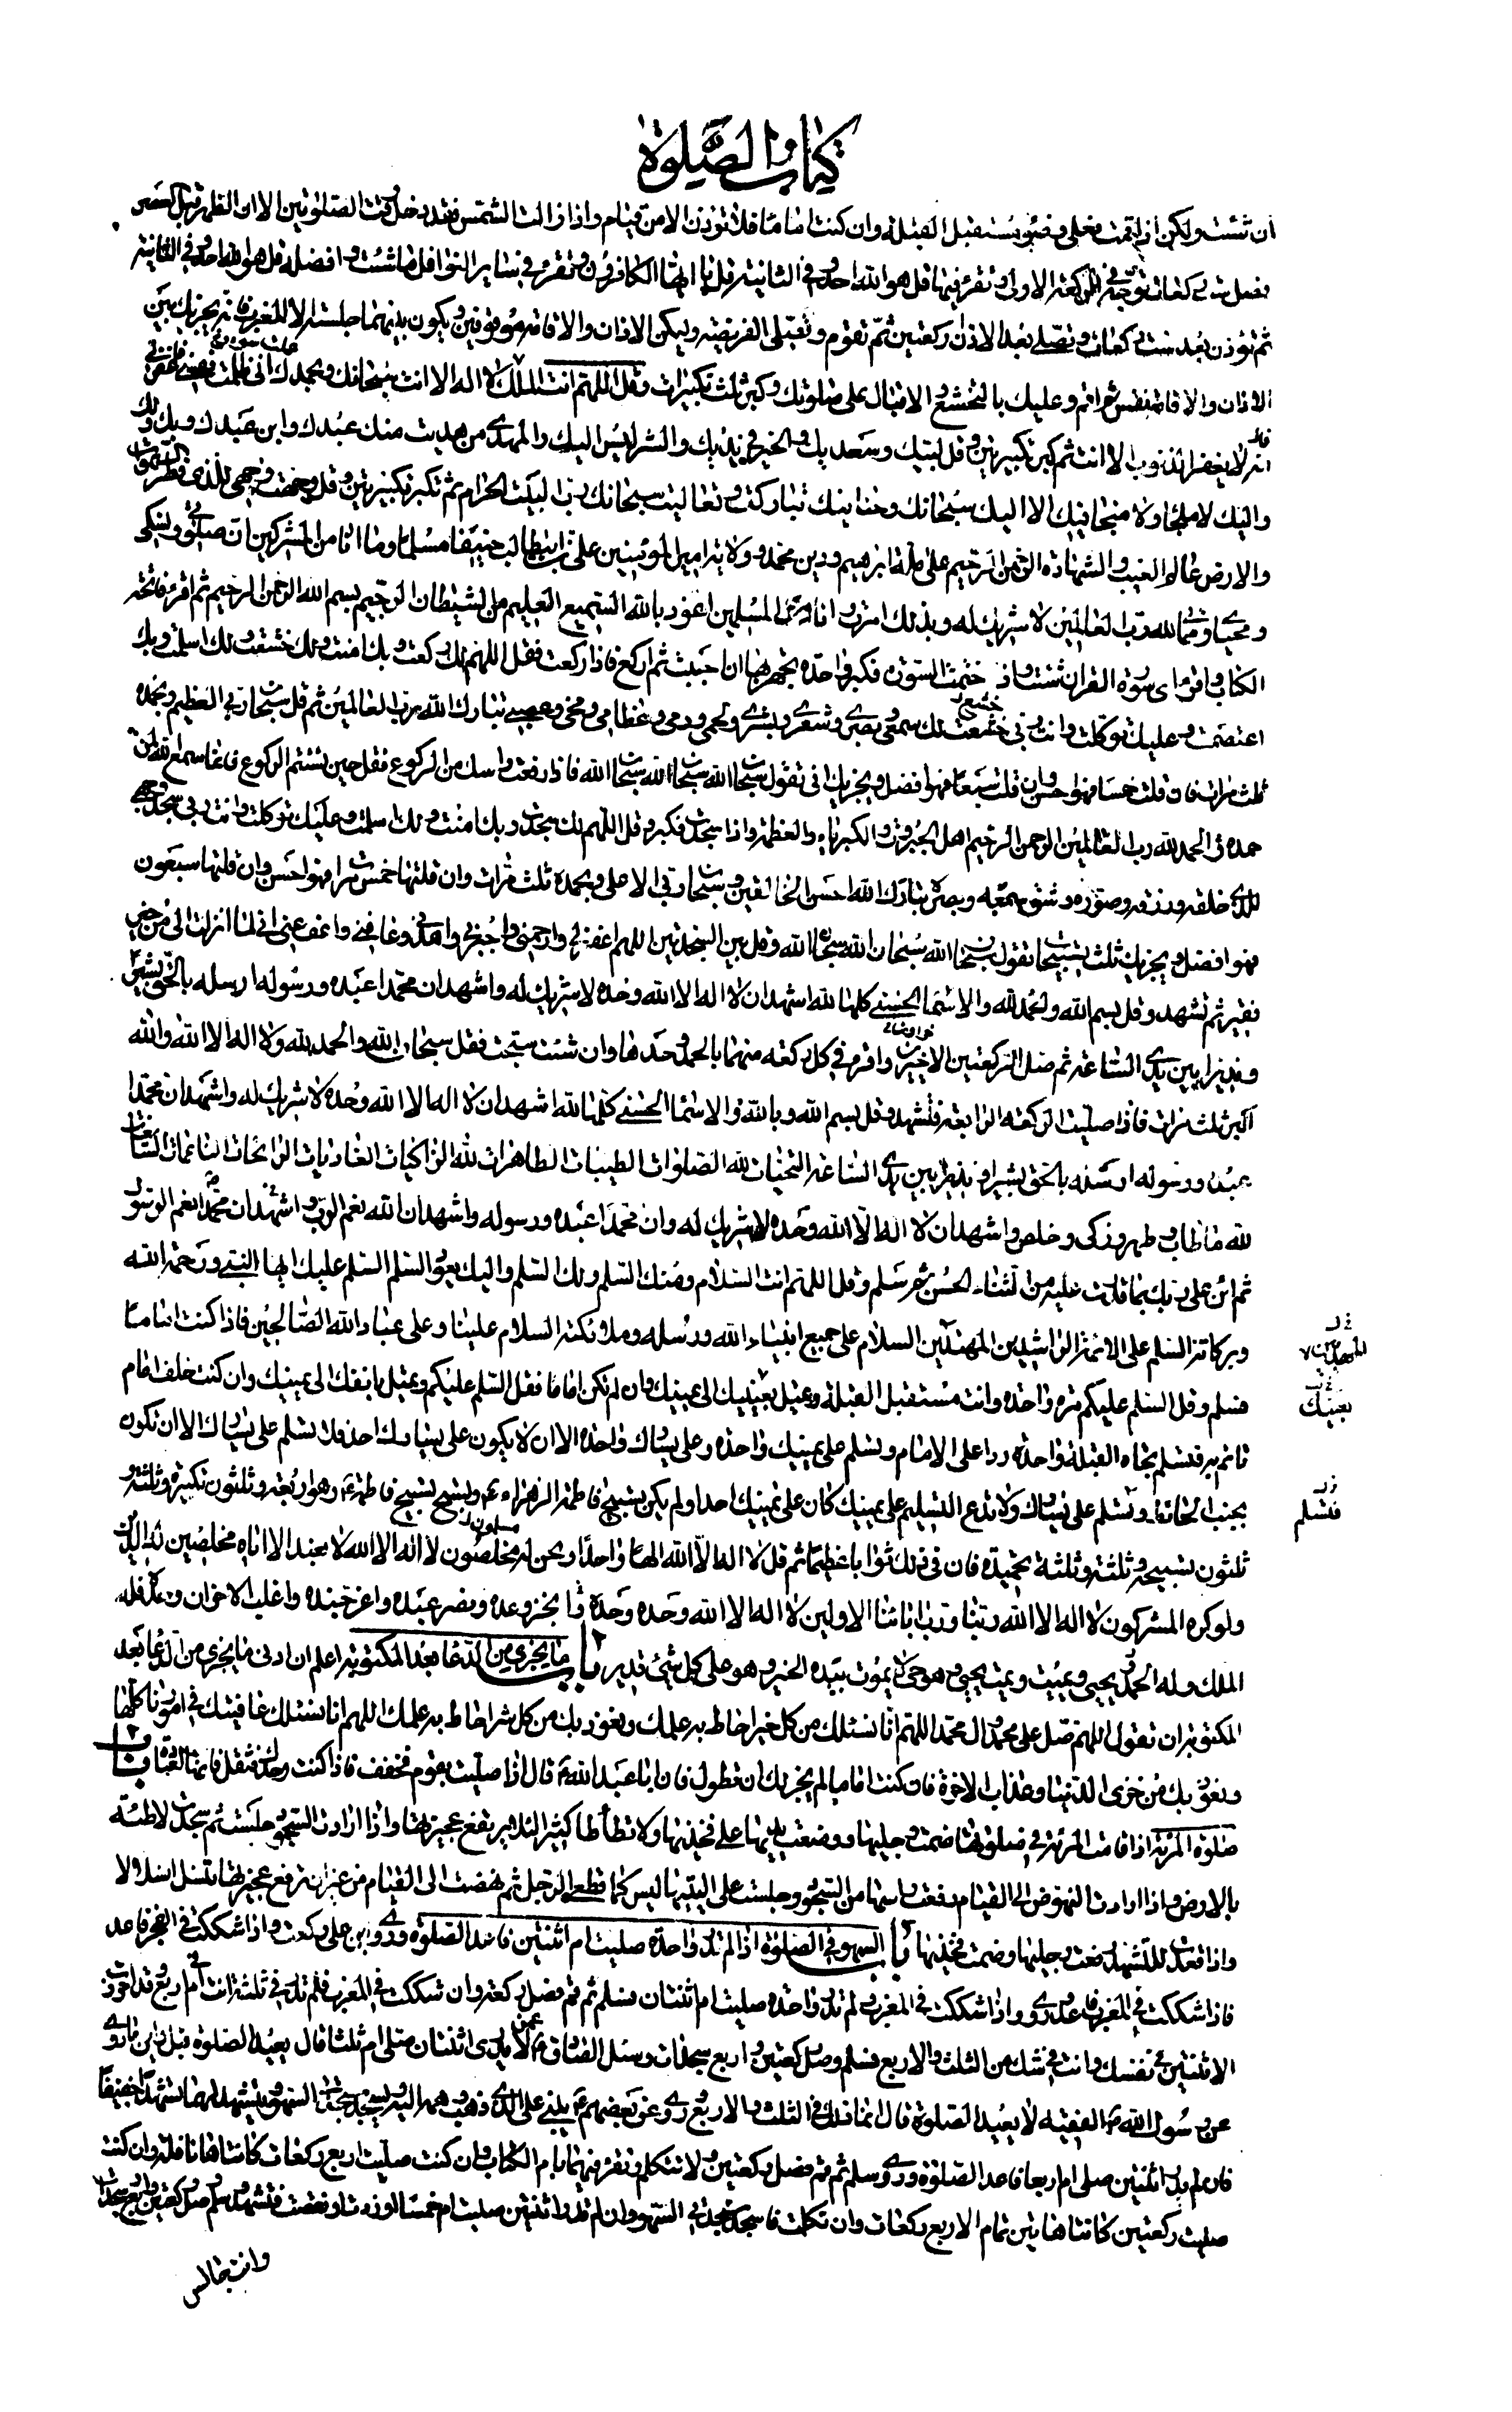 كتاب الصلوة
ان شئت ولكن اذا اقمت فعلى وضوء مستقبل القبلة وان كنت اماما فلا تؤذن الا من قيام واذا زالت الشمس فقد دخل وقت الصلوتين الا ان الظهر قبل العصر
فصل ست ركعات توجه في الركعة الاولى وتقرء فيها قل هو الله احد وفي الثانية قل يا ايها الكافرون وتقرء في سائر النوافل ما شئت وافضله قل هو الله احد وفي الثانية
ثم تؤذن بعد ست ركعات وتصلى بعد الاذان ركعتين ثم تقوم وتصلى الفريضة وليكن الاذان والاقامة موقوفين ويكون بينهما جلسة الا المغرب فانه يجزيك بين
الاذان والاقامة نفس ثم اقم وعليك بالتخشع والاقبال على صلوتك وكبر ثلث تكبيرات وقل اللهم انت الملك لا اله الا انت سبحانك وبحمدك انى ظلمت نفسى فاغفر لى
انه لا يغفر الذنوب الا انت ثم كبر تكبيرتين وقل لبيك وسعديك والخير في يديك والشر ليس اليك والمهدى من هديت منك عبدك وابن عبدك وبك ولك
واليك لا ملجا ولا منجا منك الا اليك سبحانك وحنانيك تباركت وتعاليت سبحانك رب البيت الحرام ثم تكبر تكبيرتين وقل وجهت وجهى للذى فطر السموات
والارض عالم الغيب والشهادة الرحمن الرحيم على ملة ابرهيم ودين محمد وولاية امير المؤمنين على بن ابيطالب حنيفا مسلما وما انا من المشركين ان صلوتى ونسكى
ومحياى ومماتى لله رب العالمين لا شريك له وبذلك امرت وانا من المسلمين اعوذ بالله السميع العليم من الشيطان الرجيم بسم الله الرحمن الرحيم ثم اقرء فاتحة
الكتاب واقرء اى سورة القران شئت واذا ختمت السورة فكبر واحدة تجهر بها ان احببت ثم اركع فاذا ركعت فقل اللهم لك ركعت وبك امنت ولك خشعت ولك اسلمت وبك
اعتصمت وعليك توكلت وانت ربى خشعت لك سمعى وبصرى وشعرى وبشرى ولحمى ودمى وعظامى ومخى وعصبى تبارك الله رب العالمين ثم قل سبحان ربى العظيم وبحمده
ثلث مرات فان قلت خمسا فهو احسن وان قلت سبعا فهو افضل ويجزيك ان تقول سبحان الله سبحان الله سبحان الله فاذا رفعت راسك من الركوع فقل حين تستتم الركوع قائما سمع الله لمن
حمده والحمد لله رب العالمين الرحمن الرحيم اهل الجبروت والكبرياء والعظمة واذا سجدت فكبر وقل اللهم لك سجدت وبك امنت ولك اسلمت وعليك توكلت وانت ربى سجد وجهى
للذى خلقه ورزقه وصوره وشق سمعه وبصره تبارك الله احسن الخالقين وسبحان ربى الاعلى وبحمده ثلث مرات وان قلتها خمس مرات فهو احسن وان قلتها سبعون
فهو افضل ويجزيك ثلث تسبيحات تقول سبحان الله سبحان الله سبحان الله وقل بين السجدتين اللهم اغفر لى وارحمنى واجبرنى واهدنى وعافنى واعف عنى انى لما انزلت الى من خير
فقير ثم تشهد وقل بسم الله والحمد لله والاسماء الحسنى كلها لله اشهد ان لا اله الا الله وحده لا شريك له واشهد ان محمدا عبده ورسوله ارسله بالحق بشيرا
ونذيرا بين يدى الساعة ثم صل الركعتين الاخيرتين واقرء في كل ركعة منهما بالحمد وحدها وان شئت سبحت فقل سبحان الله والحمد لله ولا اله الا الله والله
اكبر ثلث مرات فاذا صليت الركعة الرابعة فتشهد وقل بسم الله وبالله والاسماء الحسنى كلها لله اشهد ان لا اله الا الله وحده لا شريك له واشهد ان محمدا
عبده ورسوله ارسله بالحق بشيرا ونذيرا بين يدى الساعة التحيات لله الصلوات الطيبات الطاهرات لله الزاكيات الغاديات الرايحات الناعمات السابغات
لله ما طاب وطهر وزكى وخلص واشهد ان لا اله الا الله وحده لا شريك له وان محمدا عبده ورسوله واشهد ان الله نعم الرب واشهد ان محمدا نعم الرسول
ثم اثن على ربك بما قدرت عليه من الثناء الحسن ثم سلم وقل اللهم انت السلام ومنك السلم ولك السلم واليك يعود السلم السلم عليك ايها النبى ورحمة الله
وبركاته السلم على الائمة الراشدين المهتدين السلام على جميع انبياء الله ورسله وملائكته السلام علينا وعلى عباد الله الصالحين فاذا كنت اماما
فسلم وقل السلم عليكم مرة واحدة وانت مستقبل القبلة وتميل بعينيك الى يمينك وان لم تكن اماما فقل السلم عليكم وتميل بانفك الى يمينك وان كنت خلف امام
تاتم به فتسلم تجاه القبلة واحدة ردا على الامام وتسلم على يمينك واحدة وعلى يسارك واحدة الا ان لا يكون على يسارك احد فلا تسلم على يسارك الا ان تكون
بجنب الحائط وتسلم على يسارك ولا تدع التسليم على يمينك كان على يمينك احد او لم يكن تسبيح فاطمة الزهراء ع وتسبح تسبيح فاطمة ع وهو اربعة وثلثون تكبيرة وثلثة و
ثلثون تسبيحة وثلثة وثلثة تحميدة فان في ذلك ثوابا عظيما ثم قل لا اله الا الله الها واحدا ونحن له مخلصون لا اله الا الله لا نعبد الا اياه مخلصين له الدين
ولو كره المشركون لا اله الا الله ربنا ورب ابائنا الاولين لا اله الا الله وحده وحده وحده وانجز وعده ونصر عبده واعز جنده واغلب الاحزاب وحده فله
الملك وله الحمد يحيى ويميت ويميت ويحيى وهو حى لا يموت بيده الخير وهو على كل شئ قدير باب ما يجزى من الدعاء بعد المكتوبة اعلم ان ادنى ما يجزى من الدعاء بعد
المكتوبة ان تقول اللهم صل على محمد وال محمد اللهم انا نسئلك من كل خير احاط به علمك ونعوذ بك من كل شر احاط به علمك اللهم انا نسئلك عافيتك في امورنا كلها
ونعوذ بك من خزى الدنيا وعذاب الاخرة فان كنت اماما لم يجزيك ان تطول فان ابا عبد الله ع قال اذا صليت بقوم فخفف فاذا كنت وحدك فثقل فانما العبادة باب
صلوة المرئة اذا قامت المرئة في صلوتها ضمت رجليها ووضعت يديها على فخذيها ولا تطأطأ كثيرا لئلا يرتفع عجيزتها واذا ارادت السجود جلست ثم سجدت لاطئة
بالارض واذا ارادت النهوض الى القيام رفعت راسها من السجود وجلست على اليتيها ليس كما يقعى الرجل ثم نهضت الى القيام من غير ان ترفع عجيزتها تنسل انسلالا
واذا قعدت للتشهد رفعت رجليها وضمت فخذيها باب السهو في الصلوة اذا لم تدر واحدة صليت ام اثنتين فاعد الصلوة وروى ابن على ركعة واذا شككت في الفجر فاعد
فاذا شككت في المغرب فاعد وروى واذا شككت في المغرب ولم تدر واحدة صليت ام اثنتان فسلم ثم قم فصل ركعة وان شككت في المغرب فلم تدر في ثلثة انت ام اربع وقد احرزت
الاثنتين في نفسك وانت في شك من الثلث والاربع فسلم وصل ركعتين واربع سجدات وسئل الصادق ع عمن لا يدرى اثنتان صلى ام ثلثا قال يعيد الصلوة قيل واين ما روى
عن رسول الله ص الفقيه لا يعيد الصلوة قال انما ذلك في الثلث والاربع وروى عن بعضهم ع يبنى على الذى ذهب وهمه اليه ويسجد سجدتى السهو ويتشهد لهما تشهدا خفيفا
فان لم يدر اثنتين صلى ام اربعا فاعد الصلوة وروى سلم ثم قم فصل ركعتين ولا تتكلم وتقرء فيهما بام الكتاب وان كنت صليت اربع ركعات كانتا هاتان نافلة وان كنت
صليت ركعتين كانتا هاتين تمام الاربع ركعات وان تكلمت فاسجد سجدتى السهو وان لم تدر اثنتين صليت ام خمسا او زدت او نقصت فتشهد وسلم وصل ركعتين واربع سجدات
وانت جالس
المهديين
بعينك
فتسلم